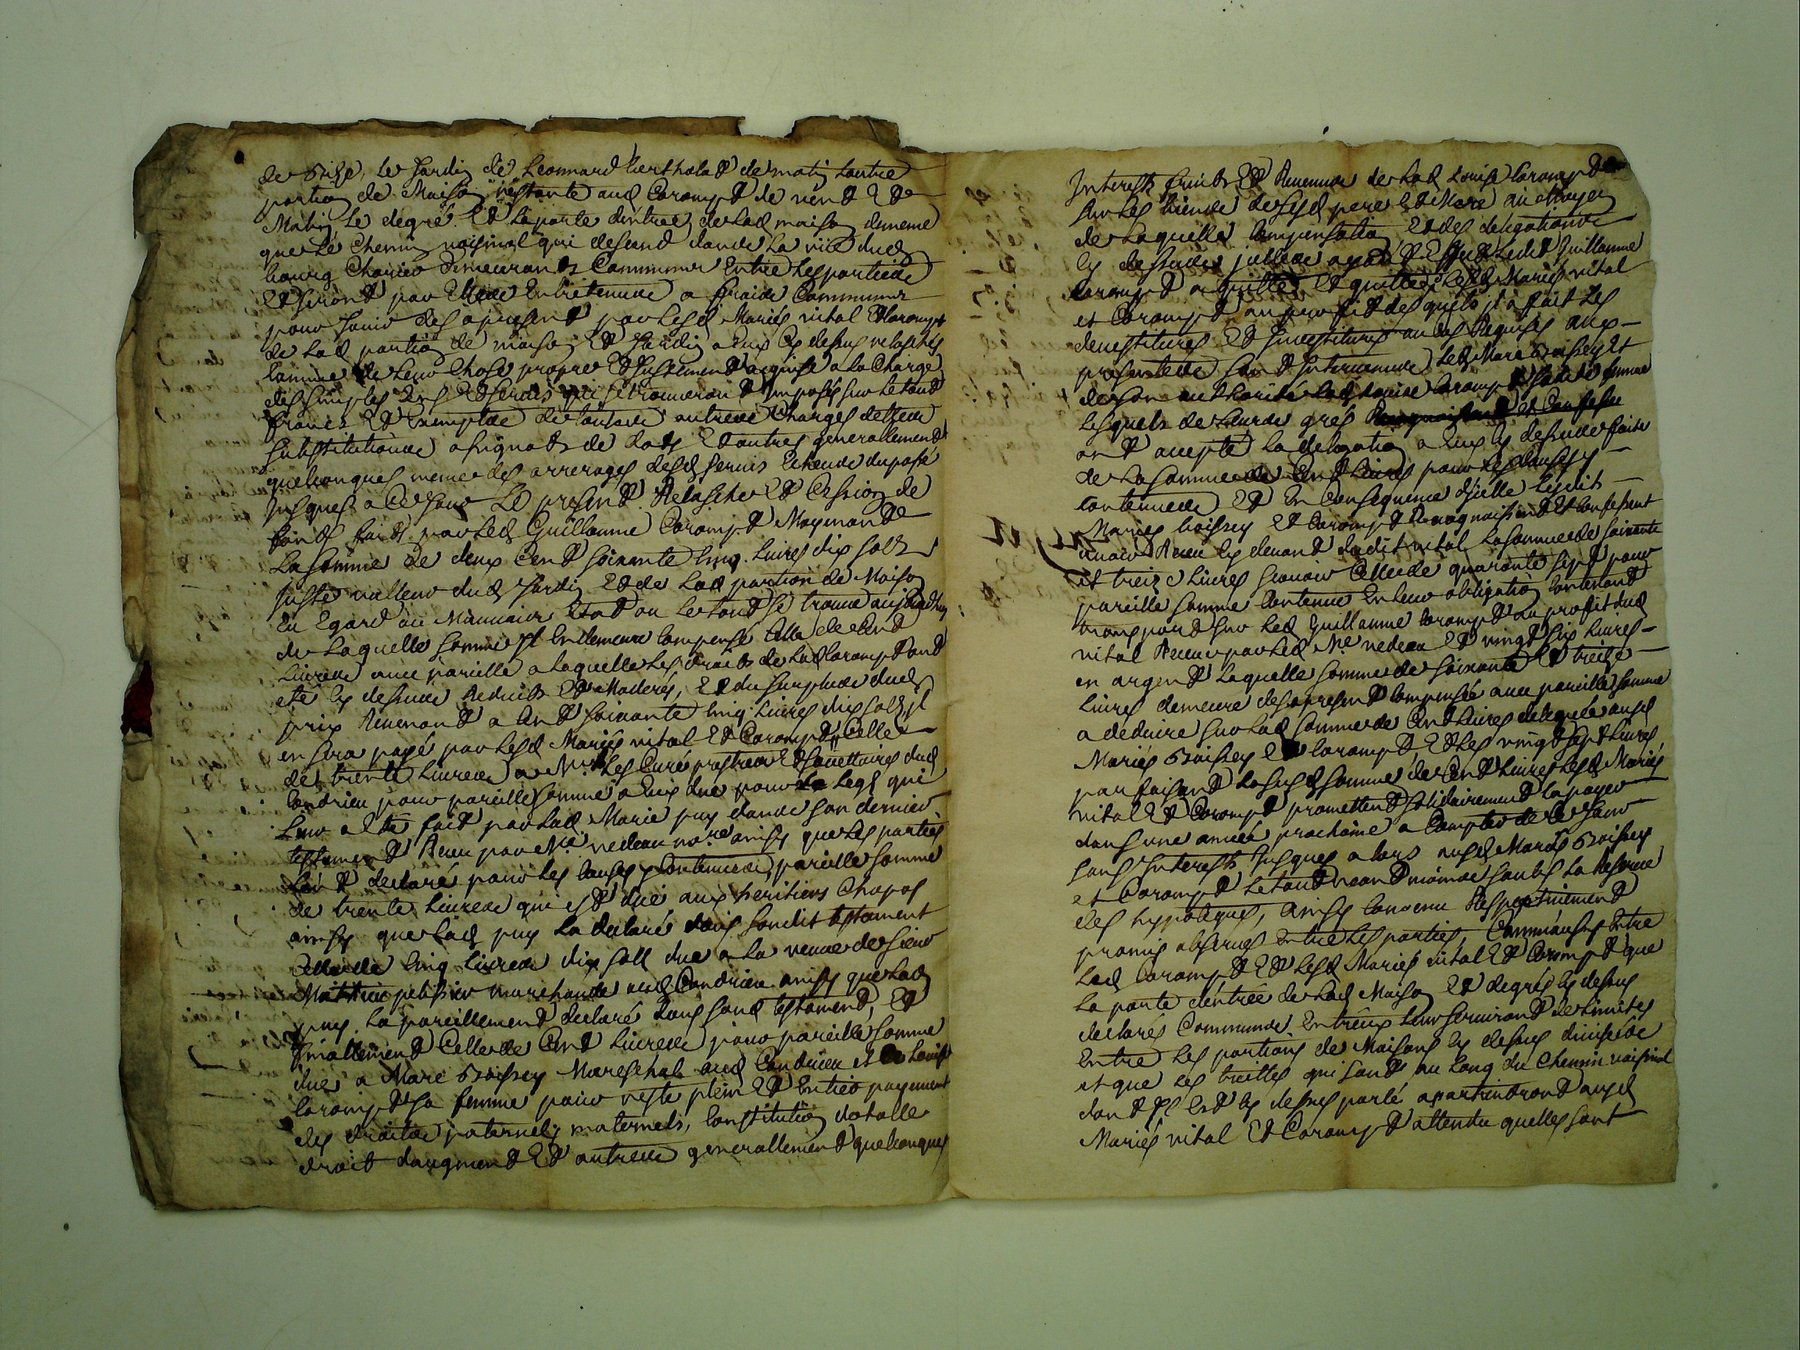 de bise, le Jardin de Leonnard Bertholat de matin lautre
portion de Maison restante aud Corompt de vent Et de
Matin, Le degré Et la porte dentrée de lad maison demême
que Le Chemin voisinal qui descend dans la rüe dud
bourg Charier demeurants Communes Entre les parties
Et seront par Elles Entretenues a fraix Communs
pour Jouir des apresent par lesd Mariés vital Et Corompt
de lad portion de maison Et Jardin a Eux Cy dessus relaschés
Comme de leur Chose propre Et Justement acquise a la Charge
des simples Cens Et servis qui se trouveront Imposés sur le tout
francs Et Exemptes de toutes autres Charges dettes
substitutions assignats de dots Et autres generallement
quelconques meme des arrerages desd servis Echeus du passé
Jusques a Ce Jour Le present Relaschet Et Cession de
fonds faits par led Guillaume Corompt Moyennant
La somme de deux Cent soixante Cinq Livres dix sols
Juste valleur dud Jardin Et de Lad portion de Maison
Eu Egard au Mauvais Etat ou le tout se trouve aujourdhuy
de Laquelle somme Il En demeure Compensé Celle de Cent
Livres avec pareille a Laquelle Les droits de Lad Corompt ont
eté Cy dessus Reduits Et Moderés, Et du surplus dud
prix Revenant a Cent soixante Cinq Livres dix sols Il
en sera payé par Lesd Mariés vital Et Corompt, Celle
de trente Livres a Mrs Les Curé prestres Et societtaires dud
Condrieu pour pareille somme a Eux due pour Le Legs qui
Leur a Eté fait par Lad Marie puy dans son dernier
testament Receu par Me vedeau nore ainsy que Les parties
L'ont declaré pour les Causes y Contenues, pareille somme
de trente Livres qui est due aux heritiers Chapos
ainsy que Lad puy La declaré dans sondit testament
Celle de Cinq Livres dix sols due a La veuve de sieur
Matthieu pelissier marchand aud Condrieu ainsy que Lad
puy La pareillement declaré dans sond testament, Et
finallement Celle de Cent Livres pour pareille somme
due a Marc Boissey Mareschal aud Condrieu et a Louise
Corompt sa femme pour reste plein Et Entier payement
des droits paternels maternels, Constitution dotalle
droit daugment Et autres generallement quelconques
Interests fruits Et Revenus de Lad Louise Corompt
sur Les biens de sesd pere Et Mere au Moyen
de Laquelle Compensation Et des delegations
Cy dessus Led Guillaume
Corompt a quitté Et quitte Lesd Mariés vital
et Corompt au proffit desquels Il a fait Les
devestitures Et Investitures au Cas Requises aux
presentes sont Intervenus Led Marc Boissey Et
de son authorité Lad Louise Corompt sadite femme
Lesquels de Leurs grés
ont accepté La delegation a Eux Cy dessus faite
de La somme de Cent Livres pour Les Causes y
Contenues Et En Consequence d'jcelle Lesdits
Mariés boissey Et Corompt Recognoissent Et Confessent
avoir Receu Cy devant dudit vital La somme de soixante
et treize Livres scavoir Celle de quarante sept pour
pareille somme Contenue En leur obligation Contenant
transport sur Led Guillaume Corompt au proffit dud
vital Receue par Led Me vedeau Et vingt six Livres
en argent Laquelle somme de soixante Et treize
Livres demeure des apresent Compensée avec pareille somme
a deduire sur Lad somme de Cent Livres deleguée ausd
Mariés Boissey Et Corompt Et Les vingt sept Livres
parfaisant Lasusd somme de Cent Livres Lesd Mariés
vital Et Corompt promettent solidairement La payer
dans une année prochaine a Compter de Ce Jour
sans Interests Jusques alors ausd Mariés Boissey
et Corompt Letout neantmoins sous La Reserve
des hypoteques, ainsy Convenu Respectivement
promis observer Entre Les parties Commausy Entre
Led Corompt Et Lesd Mariés vital Et Corompt que
La porte dentrée de Lad Maison Et degrés Cy dessus
declarés Communs Entreux Leur serviront de Limites
Entre Les portions de Maisons Cy dessus divisées
et que Les treilles qui sont au Long du Chemin voisinal
dont Il Est Cy dessus parlé apartiendront ausd
Mariés vital Et Corompt attendu quelles sont